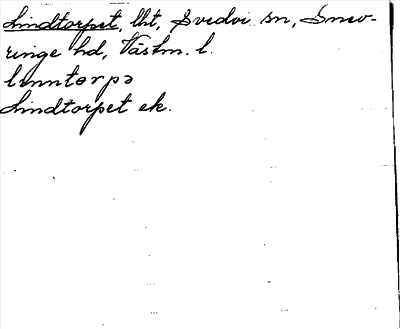 Lindtorpet, lht, Svedvi sn, Snev-
ringe hd, Västm. l.
linntorpə
Lindtorpet ek.